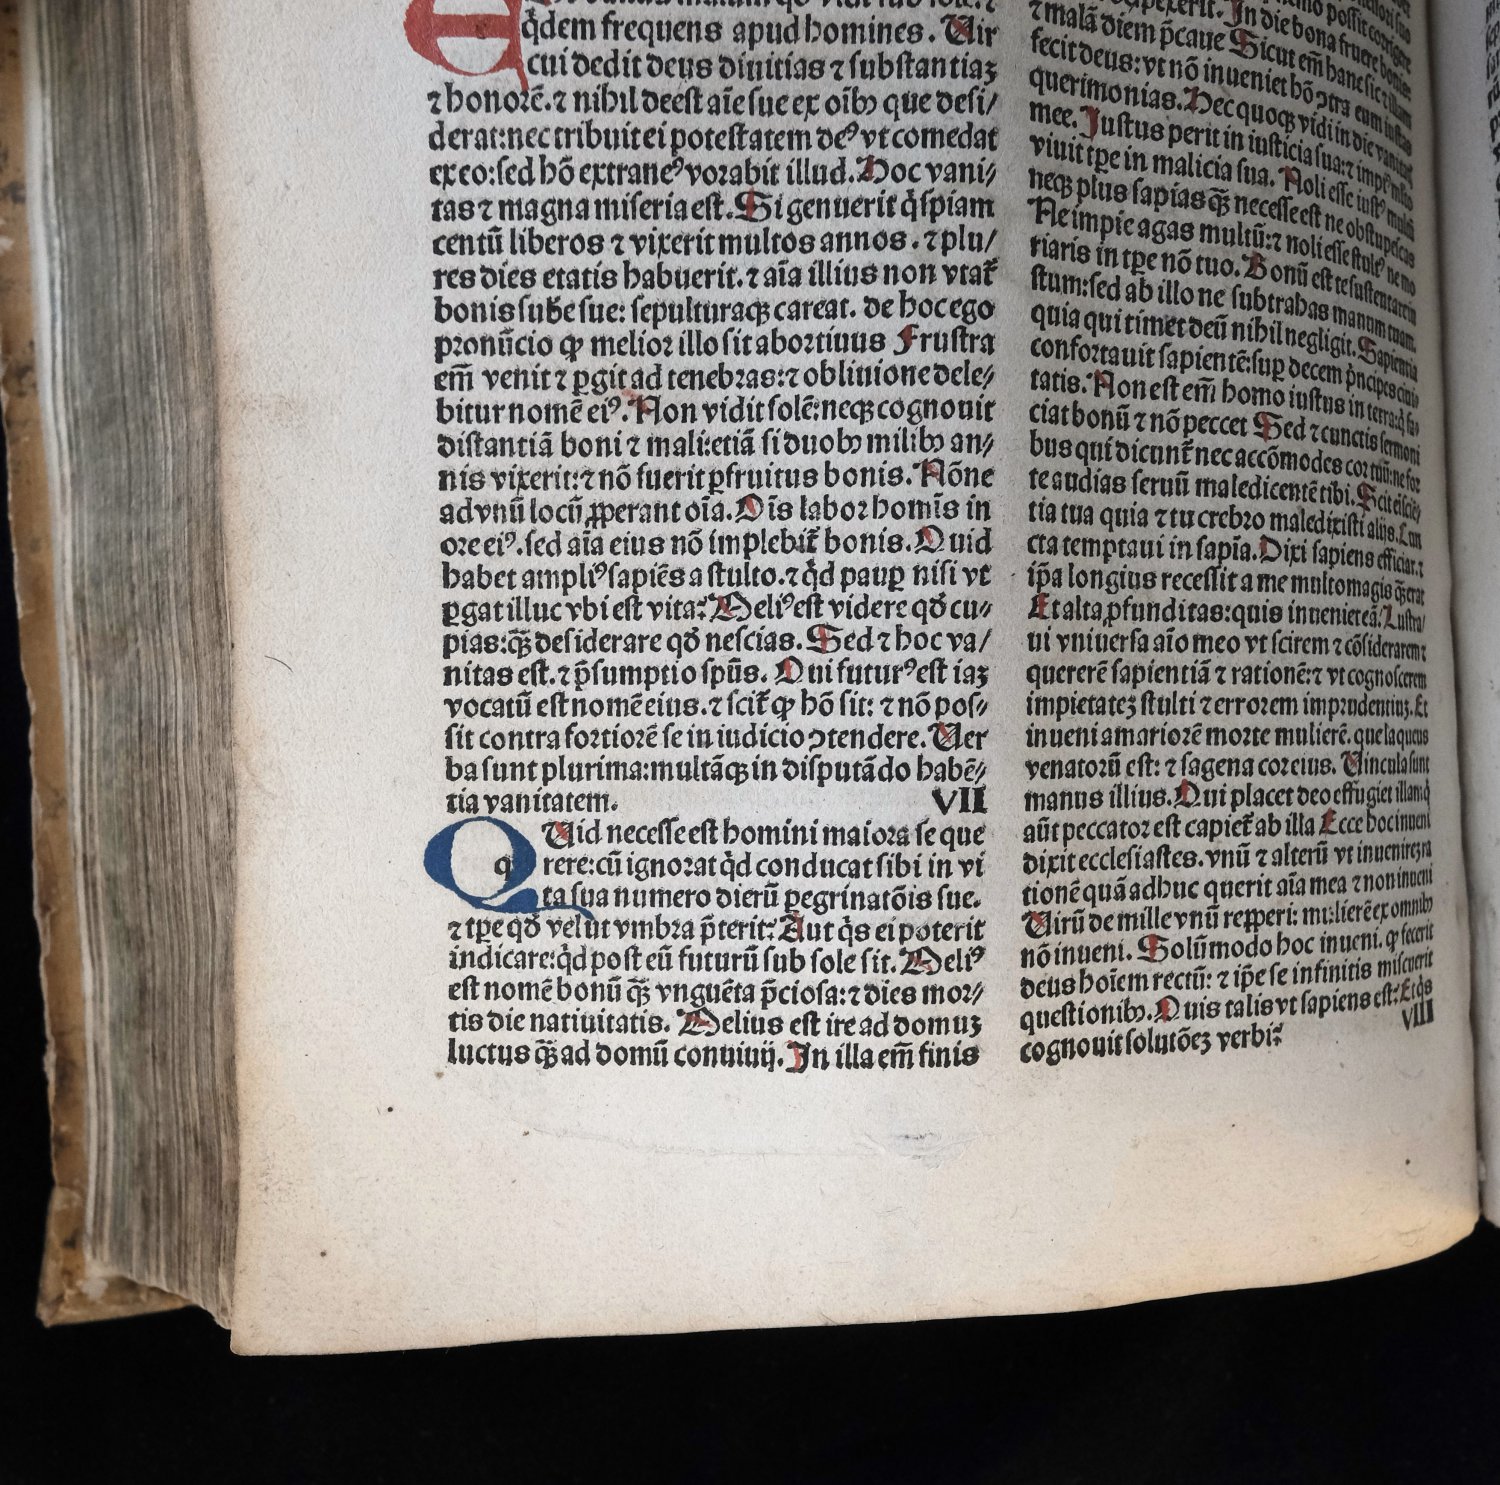 q̇dem frequens apud homines. Uir
cui dedit deus diuitias ⁊ substantiaꝫ
⁊ honorē. ⁊ nihil deest aīe sue ex oībꝰ que desi/
derat: nec tribuit ei potestatem deꝰ vt comedat
ex eo: sed hō extraneꝰ vorabit illud. Hoc vani⸗
tas ⁊ magna miseria est. Si genuerit q̇spiam
centū liberos ⁊ vixerit multos annos. ⁊ plu/
res dies etatis habuerit. ⁊ aīa illius non vtat᷑
bonis sube sue: sepulturaqꝫ careat. de hoc ego
pronūcio ꝙ melior illo sit abortiuus Frustra
em̄ venit ⁊ ꝑgit ad tenebras: ⁊ obliuione dele⸗
bitur nomē eiꝰ. Non vidit solē: neqꝫ cognouit
distantiā boni ⁊ mali: etiā si duobꝰ milibꝰ an⸗
nis vixerit: ⁊ nō fuerit ꝑfruitus bonis. Nōne
ad vnū locū ꝓperant oīa. Oīs labor homīs in
ore eiꝰ. sed aīa eius nō implebit᷑ bonis. Quid
habet ampliꝰ sapiēs a stulto. ⁊ qd̓ pauꝑ nisi vt
ꝑgat illuc vbi est vita? Meliꝰ est videre qd̓ cu⸗
pias: qꝫ̄ desiderare qd̓ nescias. Sed ⁊ hoc va/
nitas est. ⁊ p̄sumptio spūs. Qui futurꝰ est iaꝫ
vocatū est nomē eius. ⁊ scit᷑ ꝙ hō sit: ⁊ nō pos⸗
sit contra fortiorē se in iudicio ꝯtendere. Uer
ba sunt plurima: multāqꝫ in disputādo habē⸗
tia vanitatem. VII
QUid necesse est homini maiora se que
q rere: cū ignorat qd̓ conducat sibi in vi
ta sua numero dierū ꝑegrinatōis sue.
⁊ tꝑe qd̓ velut vmbra p̄terit? Aut q̇s ei poterit
indicare: qd̓ post eū futurū sub sole sit. Meliꝰ
est nomē bonū qꝫ̄ vnguēta p̄ciosa: ⁊ dies mor⸗
tis die natiuitatis. Melius est ire ad domuꝫ
luctus qꝫ̄ ad domū conuiuij. In illa em̄ finis
⁊ malā diem p̄caue Sicut em̄ hanc sic ⁊ illam
fecit deus: vt nō inueniet hō ꝯtra eum iustas
querimonias. Hec quoqꝫ vidi in die vanitatis
mee. Iustus perit in iusticia sua: ⁊ impiꝰ multo
viuit tꝑe in malicia sua. Noli esse iustꝰ multū
neqꝫ plus sapias qꝫ̄ necesse est ne obstupescas
Ne impie agas multū: ⁊ noli esse stultꝰ ne mo
riaris in tꝑe nō tuo. Bonū est te sustentare iu
stum: sed ab illo ne subtrahas manum tuam.
quia qui timet deū nihil negligit. Sapientia
confortauit sapientē: suꝑ decem p̓ncipes ciui
tatis. Non est em̄ homo iustus in terra: q̇ fa
ciat bonū ⁊ nō peccet Sed ⁊ cunctis sermoni
bus qui dicunt᷑ nec accōmodes cor tuū: ne for
te audias seruū maledicentē tibi. Scit em̄ ꝯsciē
tia tua quia ⁊ tu crebro maledixisti alijs. Cun
cta temptaui in sapīa. Dixi sapiens efficiar. ⁊
ip̄a longius recessit a me multomagis qꝫ̄ erat
Et alta ꝓfunditas: quis inueniet eā? Lustra/
ui vniuersa aīo meo vt scirem ⁊ cōsiderarem ⁊
quererē sapientiā ⁊ rationē: ⁊ vt cognoscerem
impietateꝫ stulti ⁊ errorem imprudentiuꝫ. Et
inueni amariorē morte mulierē. que laqueus
venatorū est: ⁊ sagena cor eius. Uincula sunt
manus illius. Qui placet deo effugiet illam: q̇
aūt peccator est capiet᷑ ab illa Ecce hoc inueni
dixit ecclesiastes. vnū ⁊ alterū vt inuenireꝫ ra
tionē quā adhuc querit aīa mea ⁊ non inueni
Uirū de mille vnū reꝑperi: mulierē ex omnibꝰ
nō inueni. Solūmodo hoc inueni. ꝙ fecerit
deus hoīem rectū: ⁊ ip̄e se infinitis miscuerit
questionibꝰ. Quis talis vt sapiens est? Et q̇s
cognouit solutōeꝫ verbi? VIII